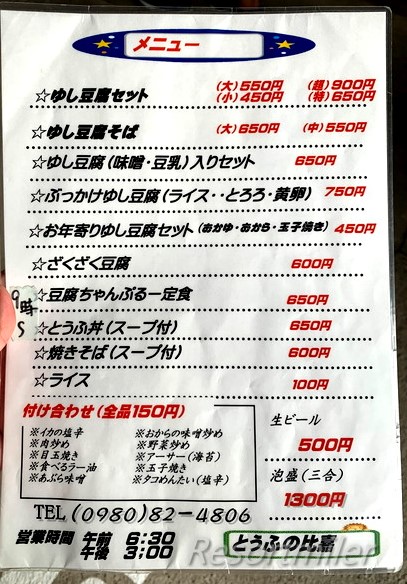 メニュー
☆ゆし豆腐セット (大)550円 (超)900円
(小)450円 (特)650円
☆ゆし豆腐そば (大)650円 (中)550円
☆ゆし豆腐(味噌・豆乳)入りセット 650円
☆ぶっかけゆし豆腐(ライス・・とろろ・黄卵) 750円
☆お年寄りゆし豆腐セット(おかゆ・おから・玉子焼き) 450円
☆ざくざく豆腐 600円
☆豆腐ちゃんぷるー定食 650円
☆とうふ丼(スープ付) 650円
☆焼きそば(スープ付) 600円
☆ライス 100円
9時
S
付け合わせ(全品150円)
※イカの塩辛 ※おからの味噌炒め
※肉炒め ※野菜炒め
※目玉焼き ※アーサー(海苔)
※食べるラー油 ※玉子焼き
※あぶら味噌 ※タコめんたい(塩辛)
生ビール
500円
泡盛(三合)
1300円
TEL(0980)82-4806
営業時間 午前 6:30
午後 3:00
とうふの比嘉